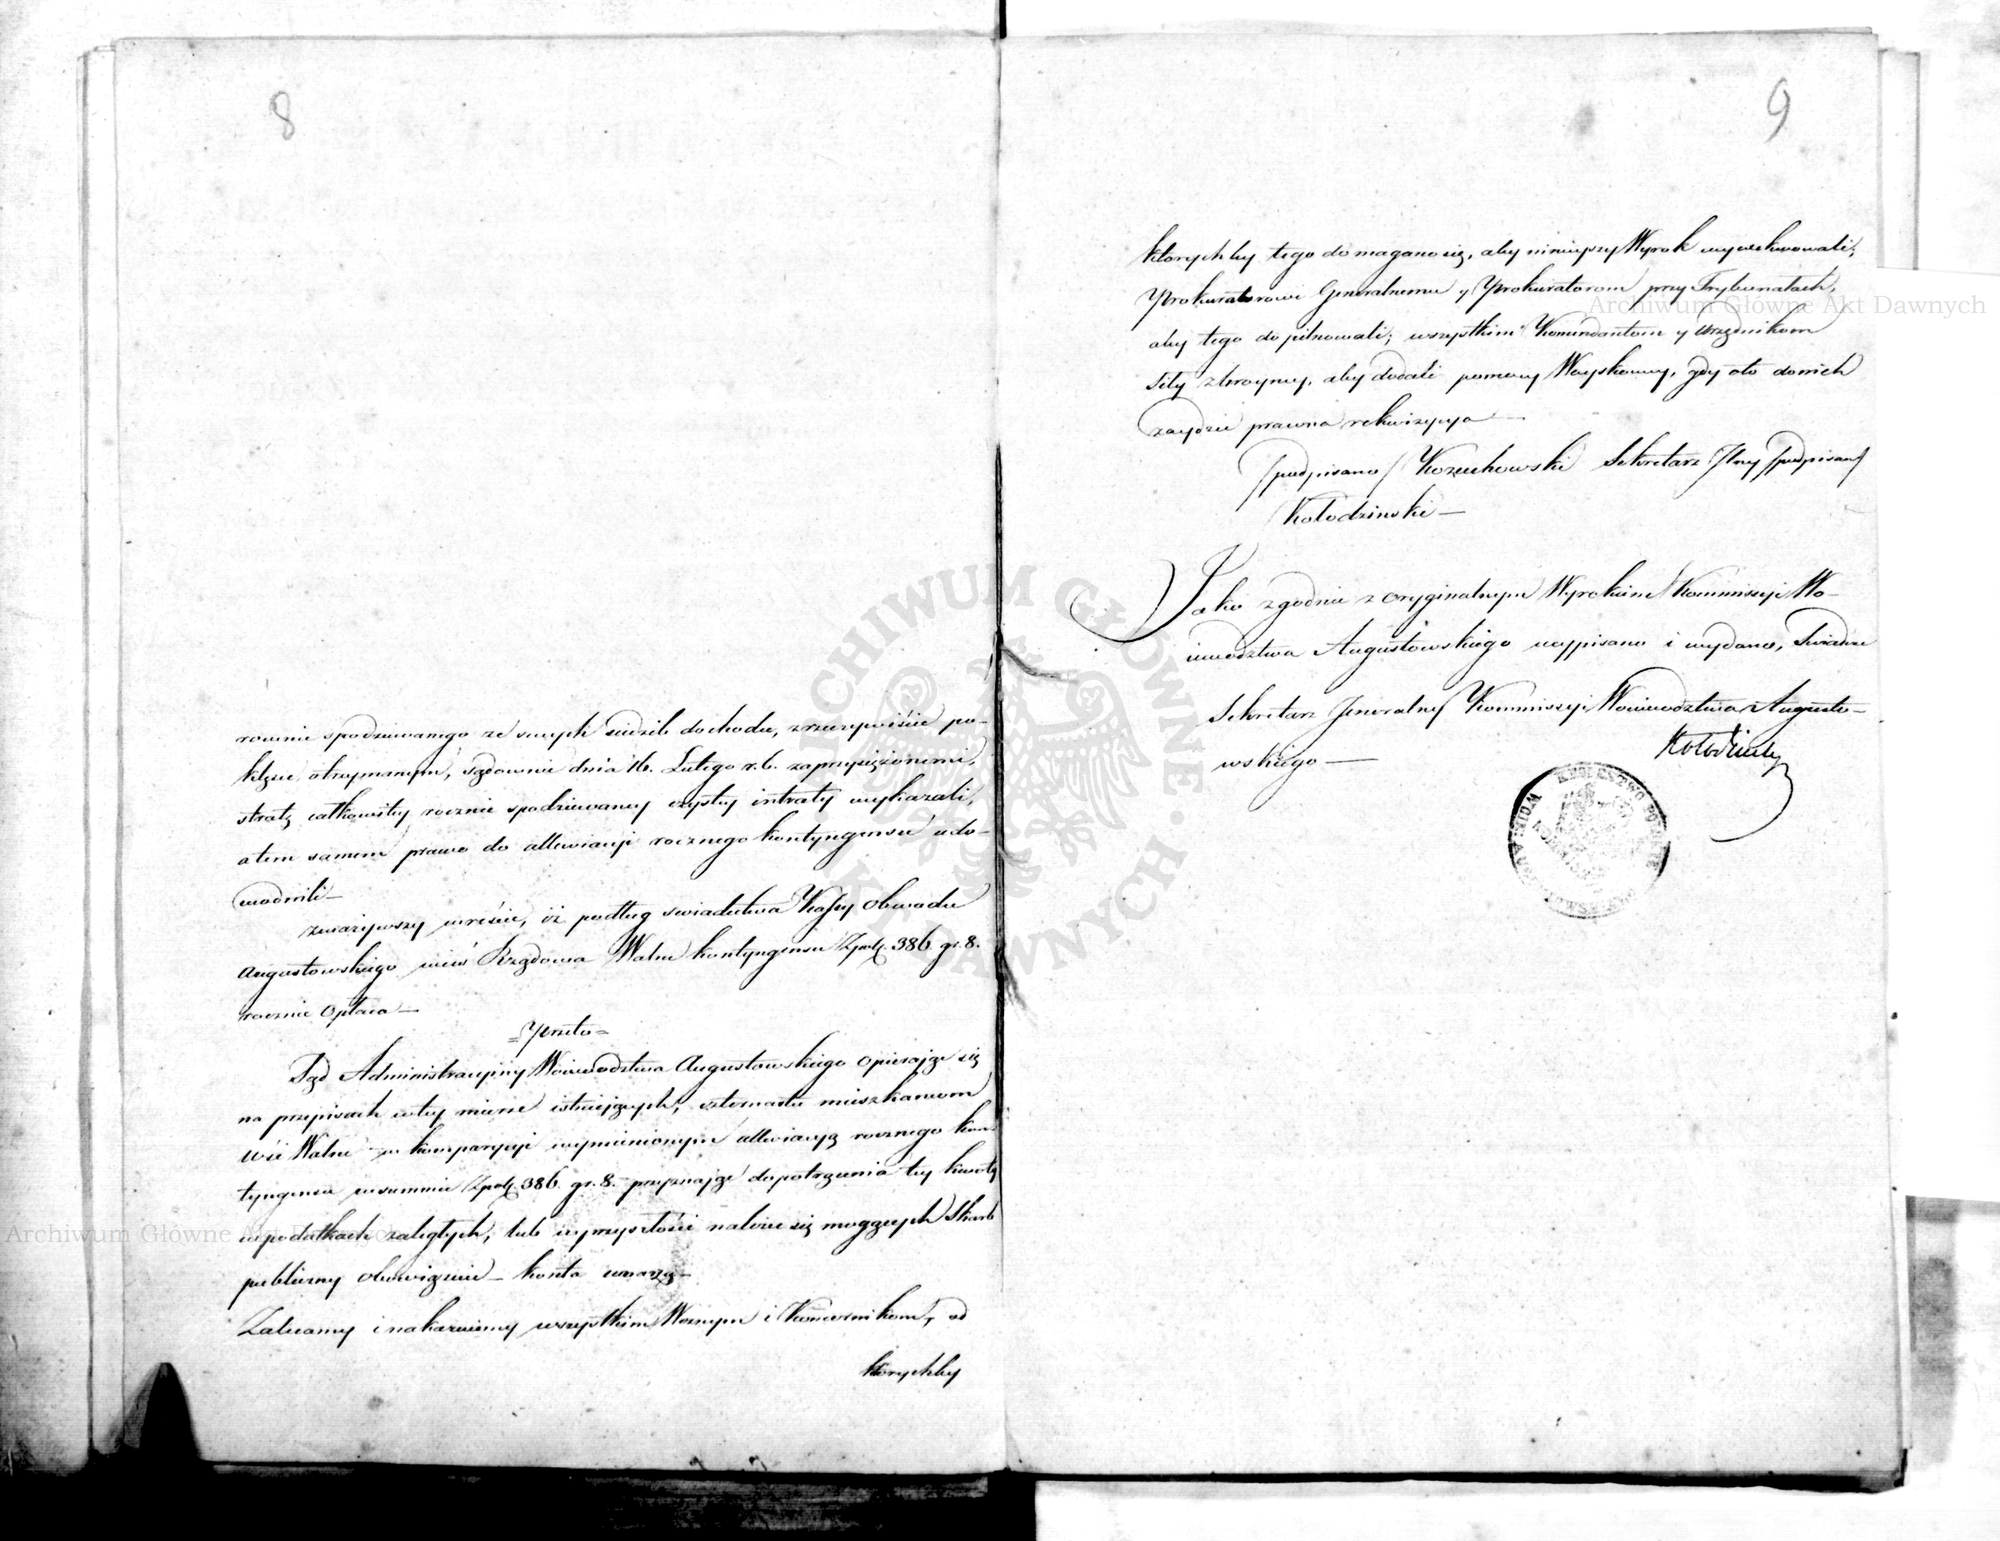 8
rocznie spodziewanego ze swych siedzib dochodu, z rzeczywiście po-
klęsce otrzymanym, sądownie dnia 16. Lutego r.b. zaprzysiężonemi,
stratę całkowitey rocznie spodziewaney czystey intraty wykazali,
a tem samem prawo do allewiacyi rocznego kontyngensu udo-
wodnili—
zważywszy wreście, iż podług swiadectwa Kassy Obwodu
Augustowskiego wieś Rządowa Walne kontyngensu Zpol. 386 gr. 8.
rocznie opłaca—
=Przeto=
Sąd Administracyiny Woiewodztwa Augustowskiego opieraiąc się
na przepisach w tey mierze istnieiących, czternastu mieszkańcom
wsi Walne w komparycyi wymienionym allewiacyą rocznego kon-
tyngensu w summie Zpol. 386 gr. 8. przyznaiąc do potrącenia tey kwoty
w podatkach zaległych, lub w przyszłości należeć się mogących Skarb
publiczny obowiązuie— koszta znosząc—
Zalecamy i nakazuiemy wszystkim Woznym i Komornikom, od
ktorychby
9
ktorychby tego domagano się, aby ninieyszy Wyrok wyexekwowali;
Prokuratorowi Generalnemu y Prokuratorom przy Trybunałach,
aby tego dopilnowali; wszystkim Komendantom y Urzędnikom
siły zbroyney, aby dodali pomocy Woyskowey, gdy oto do nich
zaydzie prawna rekwizycya—
/podpisano/ Kozuchowski Sekretarz Jlny /podpisano/
Kołodzinski—
Jako zgodnie z oryginalnym Wyrokiem Kommissyi Wo-
iewodztwa Augustowskiego wypisano i wydano, Swiadczę
Sekretarz Jeneralny Kommissyi Woiewodztwa Augusto-
wskiego—
Kołodzinski
KROLESTWO POLSKIE
ARCHIWUM GŁÓWNE AKT DAWNYCH
Archiwum Główne Akt Dawnych
Archiwum Główne Akt Dawnych